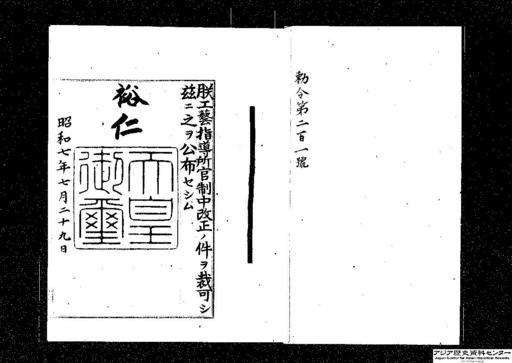 勅令第二百一號
朕工藝指導所官制中改正ノ件ヲ裁可シ
茲ニ之ヲ公布セシム
裕仁
天皇
御璽
昭和七年七月二十九日
アジア歴史資料センター
Japan Center for Asian Historical Records